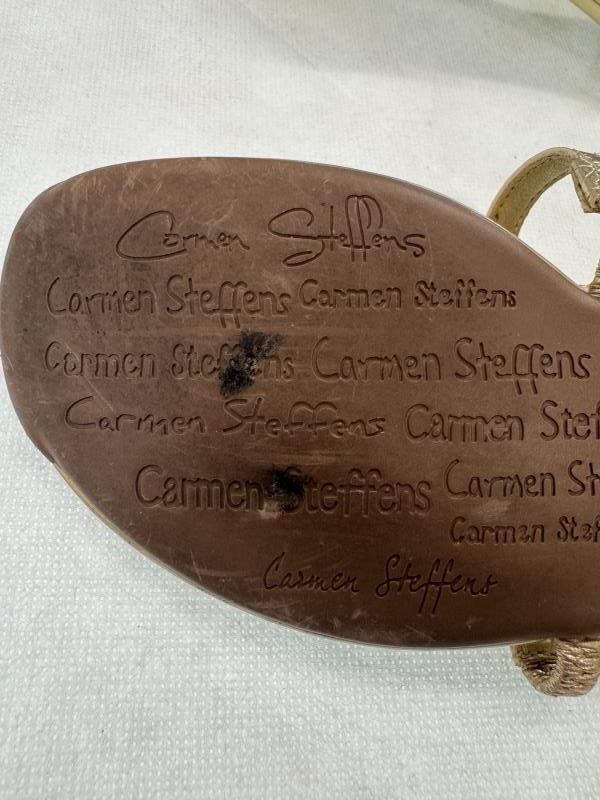 Carmen Steffens
Carmen Steffens Carmen Steffens
Carmen Steffens Carmen Steffens
Carmen Steffens Carmen Stef
Carmen Steffens Carmen St
Carmen Stef
Carmen Steffens